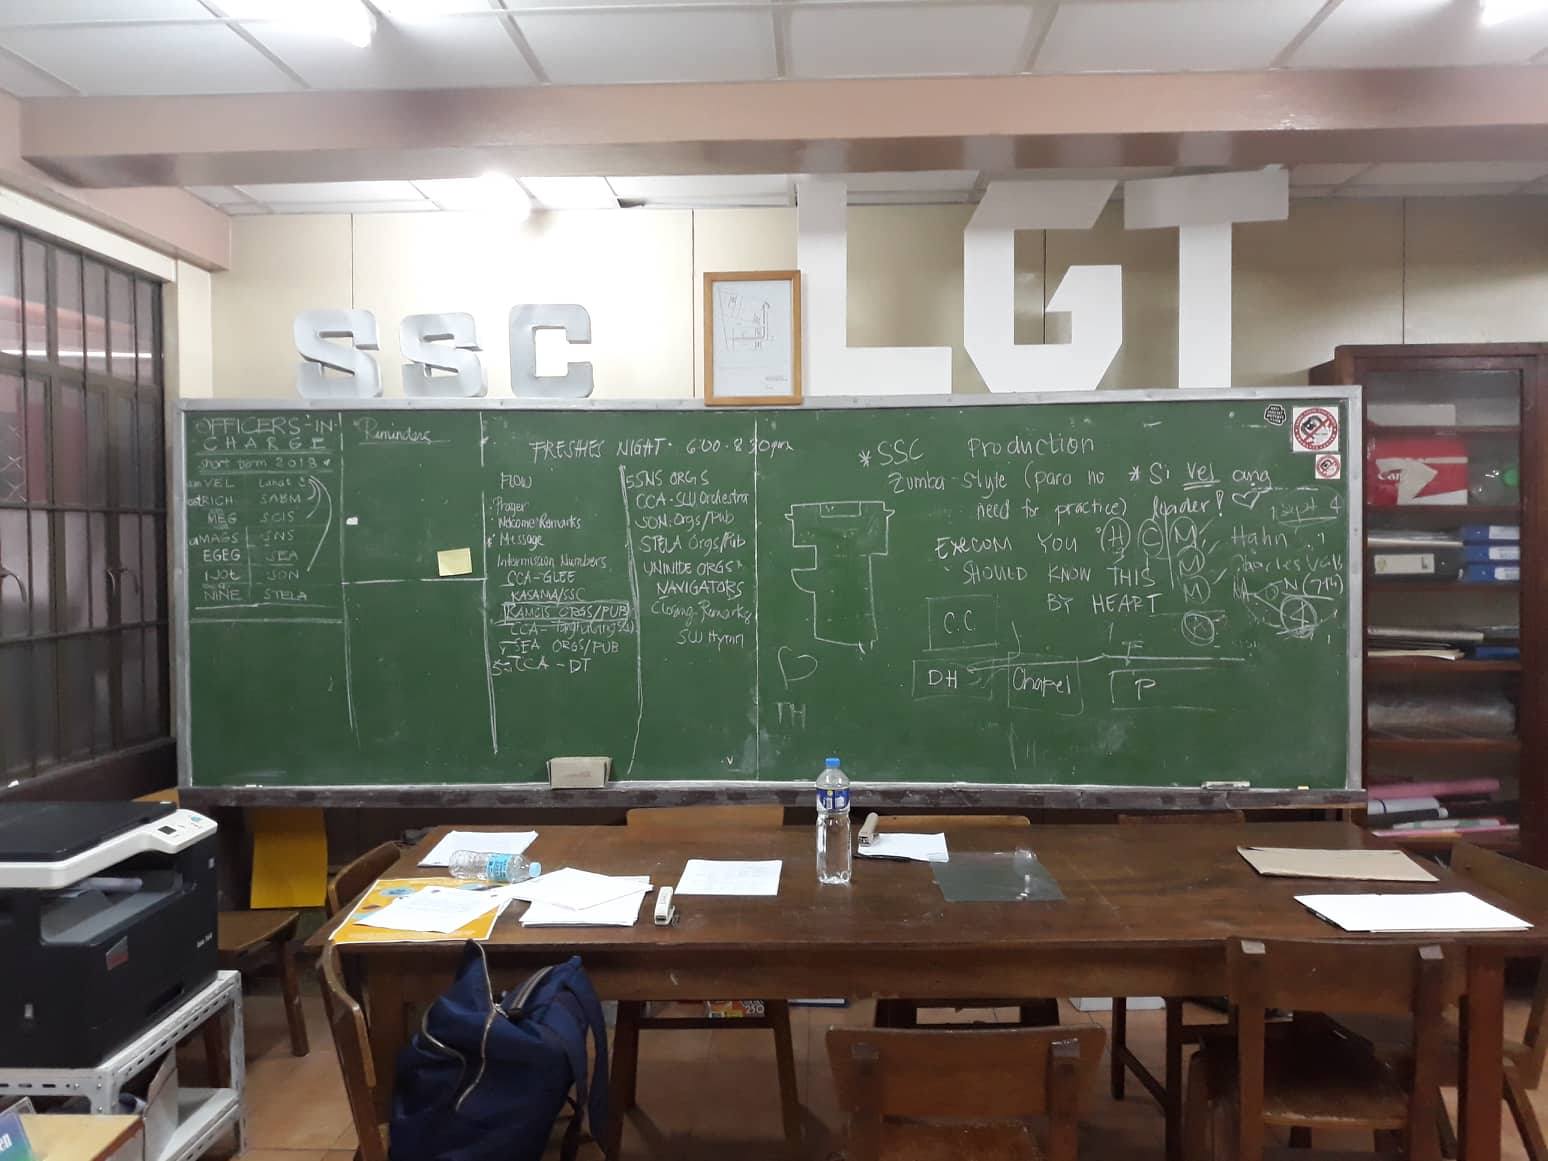 SSC
LGT
OFFICERS-IN-
CHARGE
short term 2018
VEL
RICH SABM
MEG SCIS
MAGS SNS
EGEG SEA
IJOT SON
NINE STELA
Reminders
FRESHIES NIGHT 6:00-8:30pm
FLOW
Prayer
Welcome Remarks
Message
Intermission Numbers
CCA-GLEE
KASAMA/SSC
SAMCIS ORGS/PUB
CCA-
SEA ORGS/PUB
CCA - DT
SNS ORGS
CCA-SLU Orchestra
SON Orgs/Pub
STELA Orgs/Pub
UNIWIDE ORGS
NAVIGATORS
Closing Remarks
SLU Hymn
TH
*SSC Production
Zumba-style (para no
need for practice)
* Si Vel ang
leader!
EXECOM YOU
SHOULD KNOW THIS
BY HEART
H C M
M
M
K
Hahn
Charles
N (7th)
C.C
DH
Chapel
P